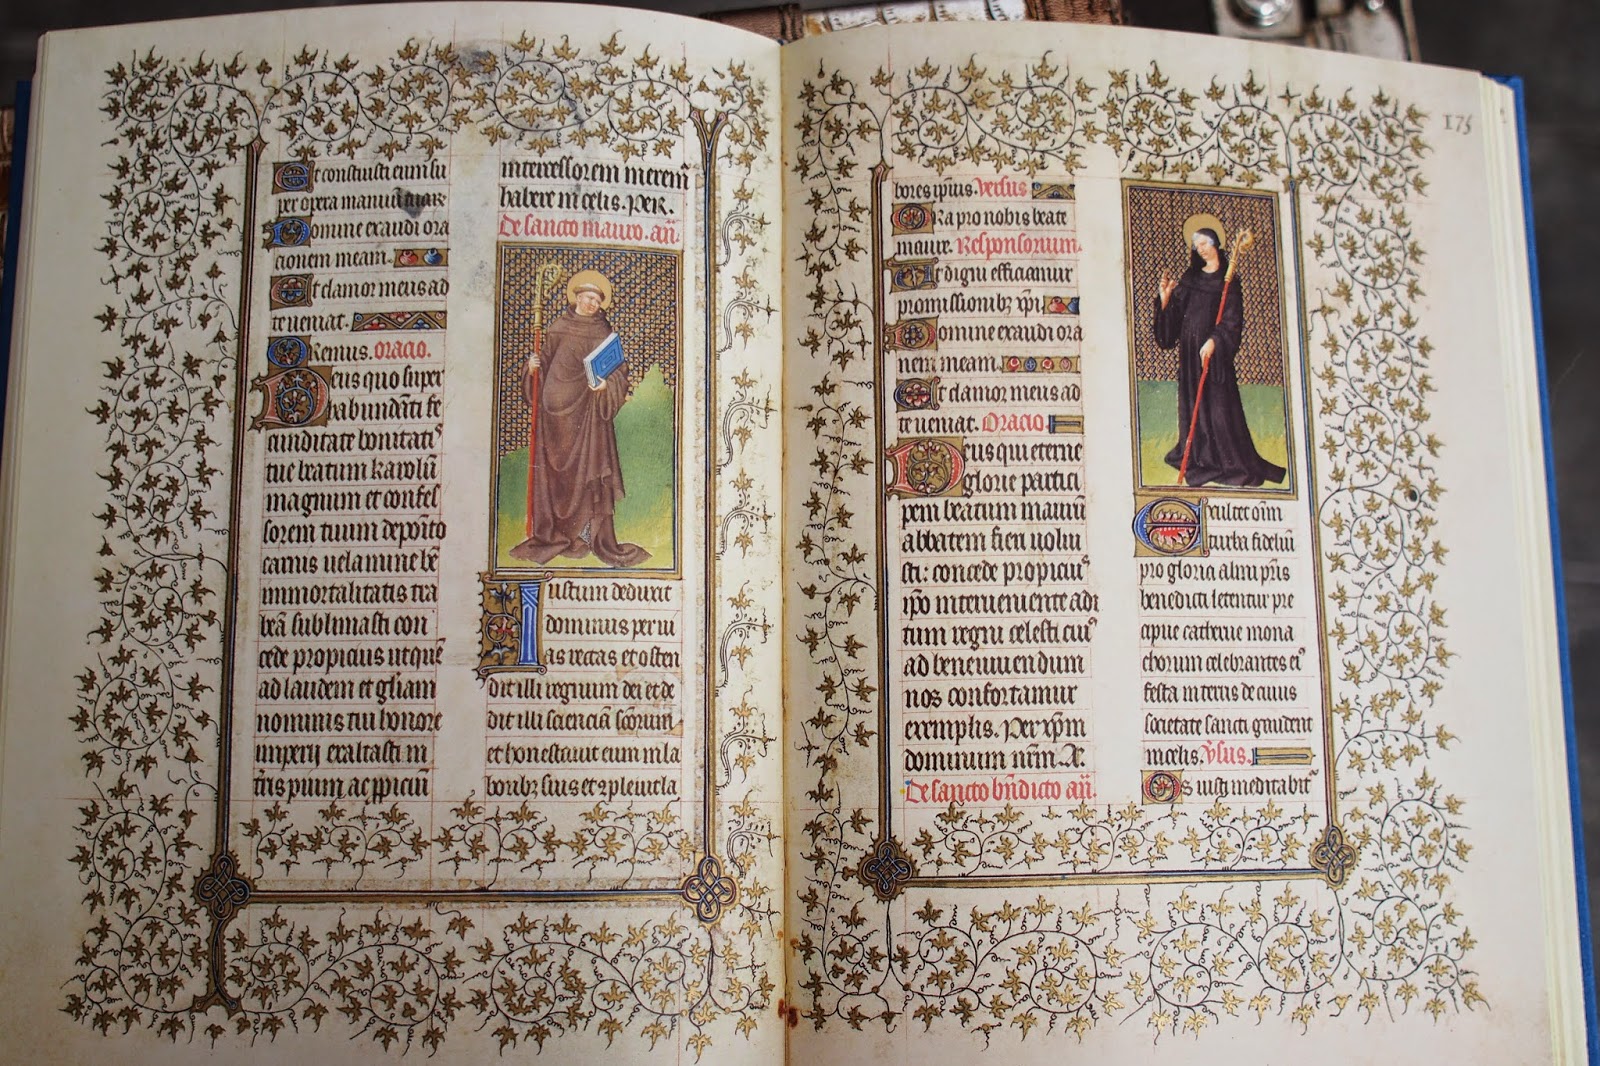 Et constituisti eum su
per opera manuū tuar.
Domine exaudi ora
cionem meam.
Et clamor meus ad
te ueniat.
Oremus. Oracio.
Deus quo super
habundāti fe
cunditate bonitatis
tue beatum karolū
magnum et confes
sorem tuum deposito
carnis uelamine be
immortalitatis tra
beā sublimasti con
cede propicius ut quē
ad laudem et gliam
nominis tui honore
imperii exaltasti in
tris pium ac ppiciū
intercessorem merem̄
habere in celis. Per.
De sancto mauro. an̄.
Iustum deduxit
dominus per ui
as rectas et osten
dit illi regnum dei et de
dit illi scienciā scōrum
et honestauit eum in la
boribꝫ suis et 9pleuit la
175
bores ipius. Versus
Ora pro nobis beate
maure. Responsorium.
Ut digni efficiamur
promissionibꝫ xp̄i
Domine exaudi ora
nem meam.
Et clamor meus ad
te ueniat. Oracio
Deus qui eterne
glorie partici
pem beatum maurū
abbatem fieri uolui
sti: concede propicius
ip̄o interueniente ad
tum regni celesti cius
ad beneuuiendum
nos confortamur
exemplis. Per xp̄m
dominum nr̄m. A.
De sancto bn̄dicto an̄.
Exultet om̄
turba fidelium
pro gloria almi pr̄is
benedicti letentur pre
cipue caterue mona
chorum celebrantes eius
festa in terris de cuius
societate sancti gaudent
in celis. V̄sus.
Os iusti meditabitꝰ